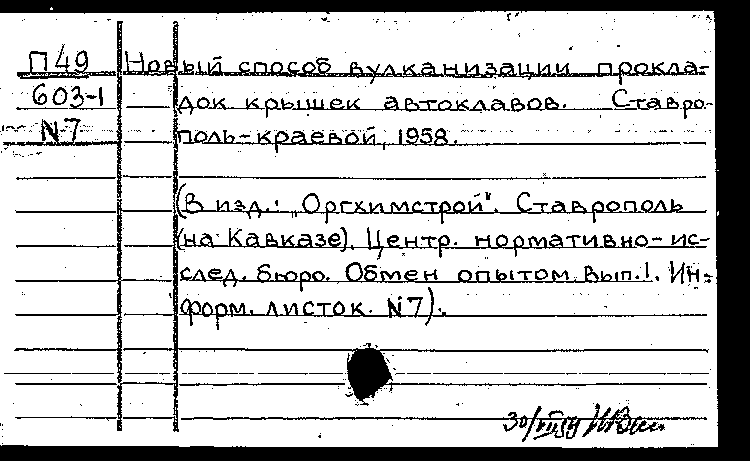 П49 Новый способ вулканизации прокла-
603-1 док крышек автоклавов. Ставро-
N7 поль-краевой, 1958.
(В изд.: „Оргхимстрой". Ставрополь
(на Кавказе). Центр. нормативно-ис-
след. бюро. Обмен опытом. Вып.1. Ин-
форм. листок. N7).